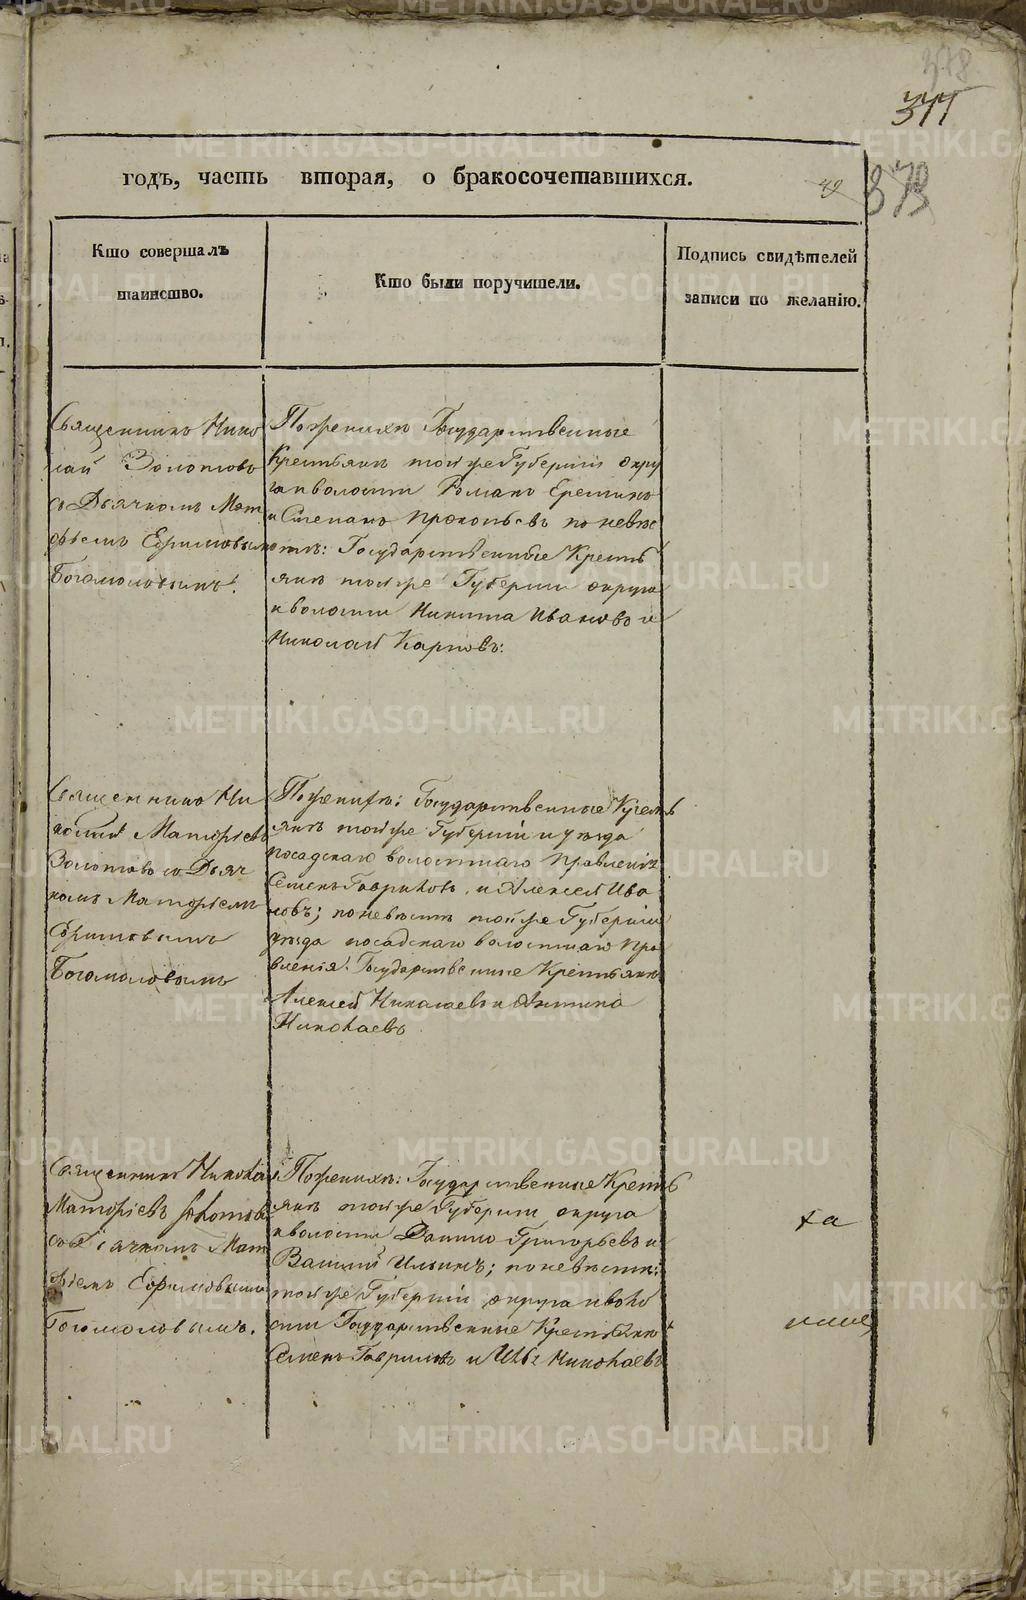 378
377
годъ, часть вторая, о бракосочетавшихся.
42
378
Кто совершалъ
таинство.
Кто были поручители.
Подпись свидѣтелей
записи по желанію.
Священникъ Нико
лай Золотовъ
съ Дьячкомъ Мат
фѣемъ Ефимовымъ
Богомоловымъ.
По женихѣ Государственные
Крестьяне той же Губерніи окру
га и волости Романъ Ереминъ
и Степанъ Прокопьевъ по невѣс
тѣ: Государственные Кресть
яне той же Губерніи округа
и волости Никита Ивановъ и
Николай Карповъ:
Священникъ Ни
колай Матфіевъ
Золотовъ съ Дьяч
комъ Матфіемъ
Ефимовымъ
Богомоловымъ
По женихѣ: Государственные Кресть
яне той же Губерніи и уѣзда
посадскаго волостнаго Правленія
Семенъ Гавриловъ и Алексей Ива
новъ; по невѣсте той же Губерніи
уѣзда посадскаго волостнаго Пра
вленія. Государственные Крестьяне
Алексей Николаевъ и
Николаевъ
Священникъ Николай
Матфіевъ Золотовъ
съ Дьячкомъ Мат
фѣемъ Ефимовымъ
Богомоловымъ.
По женихѣ: Государственные Кресть
яне той же Губерніи округа
и волости Данило Григорьевъ и
Василий Ильинъ; по невѣсте:
той же Губерніи округа и воло
сти Государственные Крестьяне
Семенъ Гавриловъ и Николаевъ
METRIKI.GASO-URAL.RU